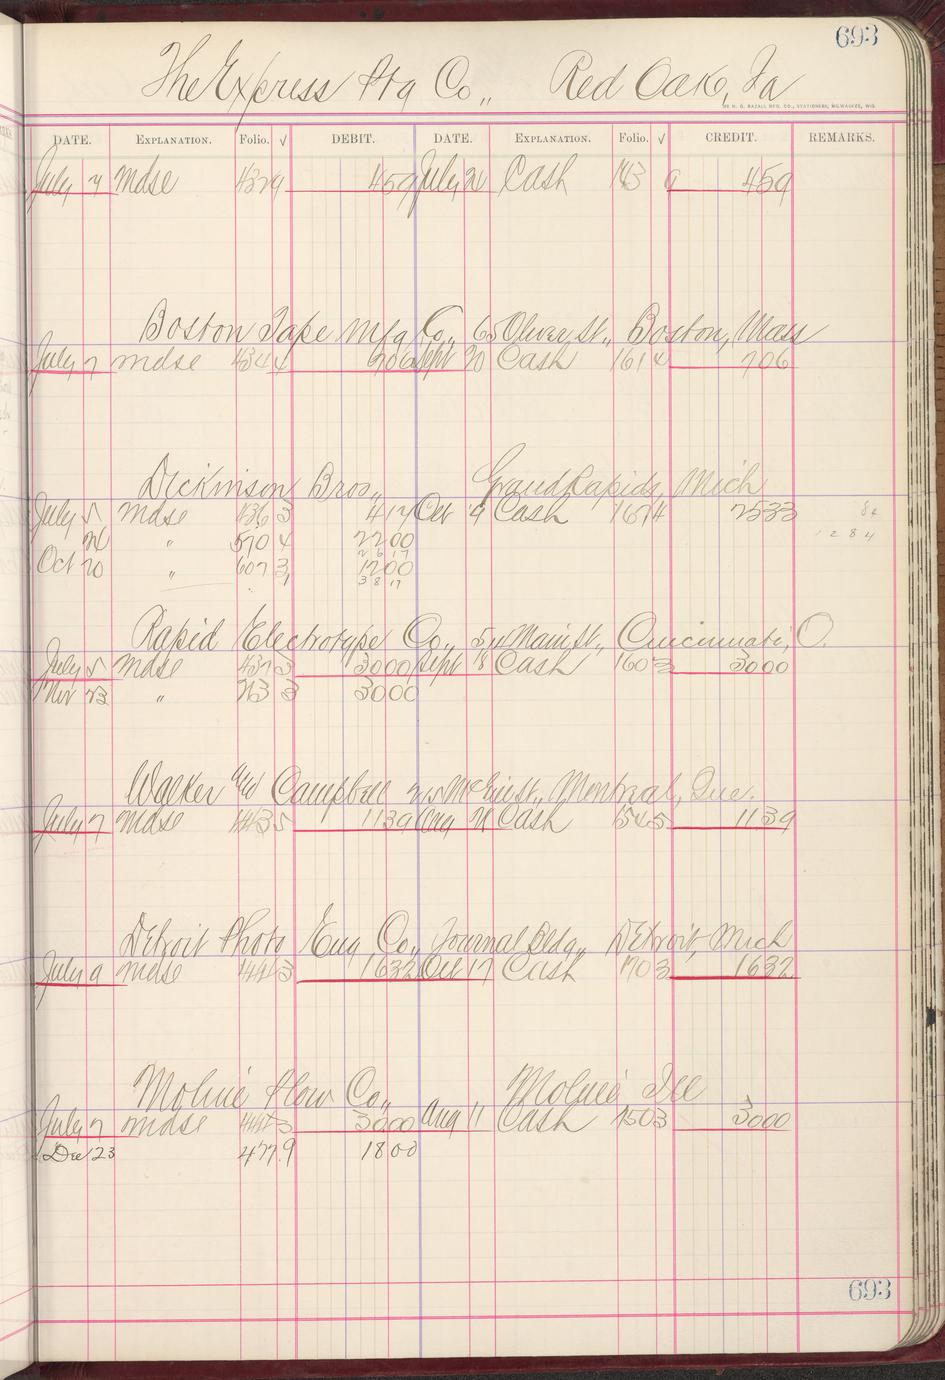 693
The Express Ptg Co., Red Oak, Ia
THE H. G. RAZALL MFG. CO., STATIONERS, MILWAUKEE, WIS.
DATE. EXPLANATION. Folio. √ DEBIT. DATE. EXPLANATION. Folio. √ CREDIT. REMARKS.
July 7 mdse 432 9 459 July 21 Cash 143 9 459
Boston Tape Mfg Co., 65 Oliver St., Boston, Mass
July 7 mdse 434 4 706 Sept 20 Cash 161 4 706
Dickinson Bros., Grand Rapids, Mich
July 5 mdse 436 3 417 Oct 9 Cash 167 4 2533
21 " 570 4 2200
2617
Oct 20 " 607 3 1200
3817
1284
Rapid Electrotype Co., Main St., Cincinnati, O.
July 5 mdse 437 3 3000 Sept 18 Cash 160 3 3000
Nov 23 " 213 3 3000
Walker and Campbell St., Montreal, Que.
July 7 mdse 443 5 1139 Aug 21 Cash 154 5 1139
Detroit Photo Eng Co., Journal Bldg., Detroit, Mich
July 9 mdse 444 3 1632 Oct 17 Cash 170 3 1632
Moline Plow Co., Moline Ill
July 7 mdse 444 3 3000 Aug 11 Cash 150 3 3000
Dec 23 477 9 1800
693